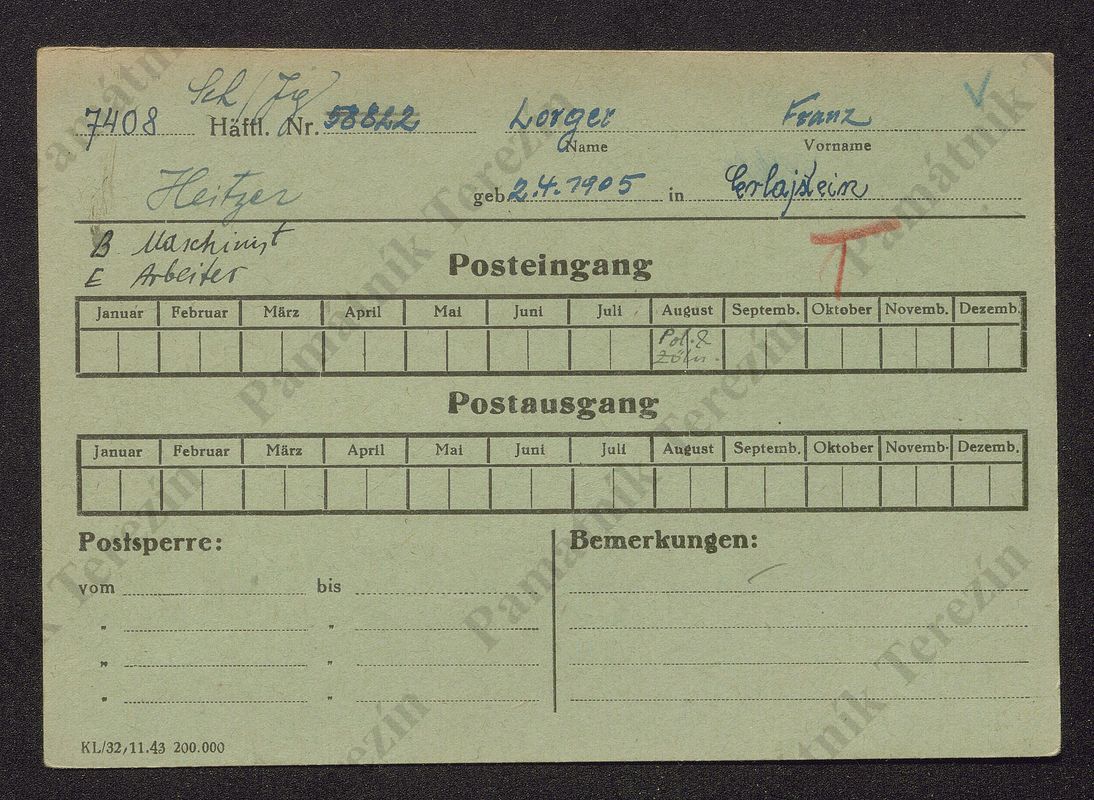 Sch / Zig
7408 Häftl. Nr. 58822 Lorger Franz
Name Vorname
Heitzer geb. 2.4.1905 in Erlajstein
B Maschinist
E Arbeiter
T
Posteingang
Januar Februar März April Mai Juni Juli August Septemb. Oktober Novemb. Dezemb.
Pol. &
Postausgang
Januar Februar März April Mai Juni Juli August Septemb. Oktober Novemb. Dezemb.
Postsperre: Bemerkungen:
vom bis
" "
" "
" "
KL/32, 11.43 200.000
Památník Terezín